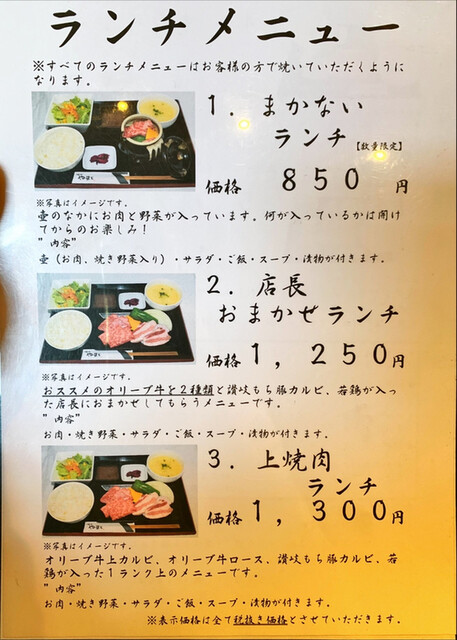 ランチメニュー
※すべてのランチメニューはお客様の方で焼いていただくように
なります。
1. まかない
ランチ【数量限定】
価格 850 円
※写真はイメージです。
壺のなかにお肉と野菜が入っています。何が入っているかは開け
てからのお楽しみ！
" 内容"
壺（お肉、焼き野菜入り）・サラダ・ご飯・スープ・漬物が付きます。
2. 店長
おまかぜランチ
価格 1,250円
※写真はイメージです。
おススメのオリーブ牛を2種類と讃岐もち豚カルビ、若鶏が入っ
た店長におまかせしてもらうメニューです。
" 内容"
お肉・焼き野菜・サラダ・ご飯・スープ・漬物が付きます。
3. 上焼肉
ランチ
価格 1,300円
※写真はイメージです。
オリーブ牛上カルビ、オリーブ牛ロース、讃岐もち豚カルビ、若
鶏が入った1ランク上のメニューです。
" 内容"
お肉・焼き野菜・サラダ・ご飯・スープ・漬物が付きます。
※表示価格は全て税抜き価格とさせていただきます。